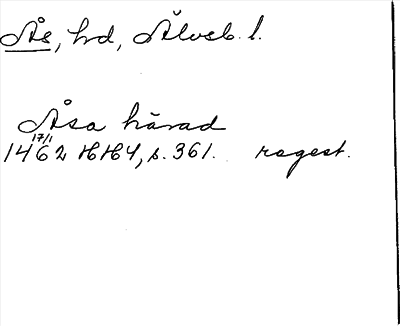 Ås, hd, Älvsb. l.
Åsa härad
17/1
1462 HH4, s. 361. regest.